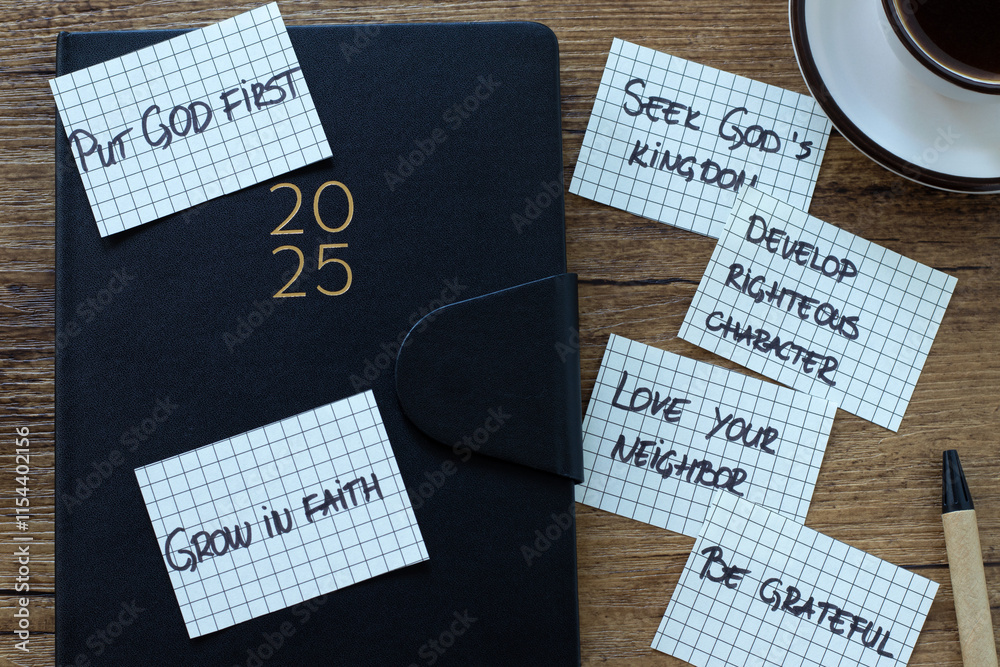 Put God first
20
25
Grow in faith
Seek God's
kingdom
Develop
righteous
character
Love your
neighbor
Be grateful
Adobe Stock | #1154402156